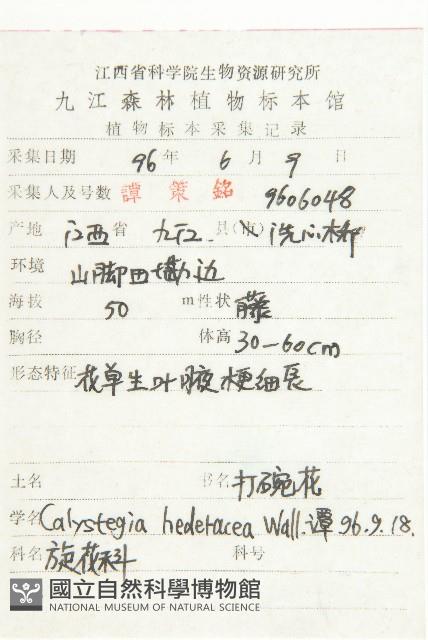 江西省科学院生物资源研究所
九江森林植物标本馆
植物标本采集记录
采集日期 96年 6月 9日
采集人及号数 譚策銘 9606048
产地 江西省 九江 县(市) 洗心桥
环境 山脚田墈边
海拔 50 m 性状 藤
胸径 体高 30—60cm
形态特征 花单生叶腋梗细長
土名 书名 打碗花
学名 Calystegia hederacea Wall. 谭 96.9.18.
科名 旋花科 科号
國立自然科學博物館
NATIONAL MUSEUM OF NATURAL SCIENCE